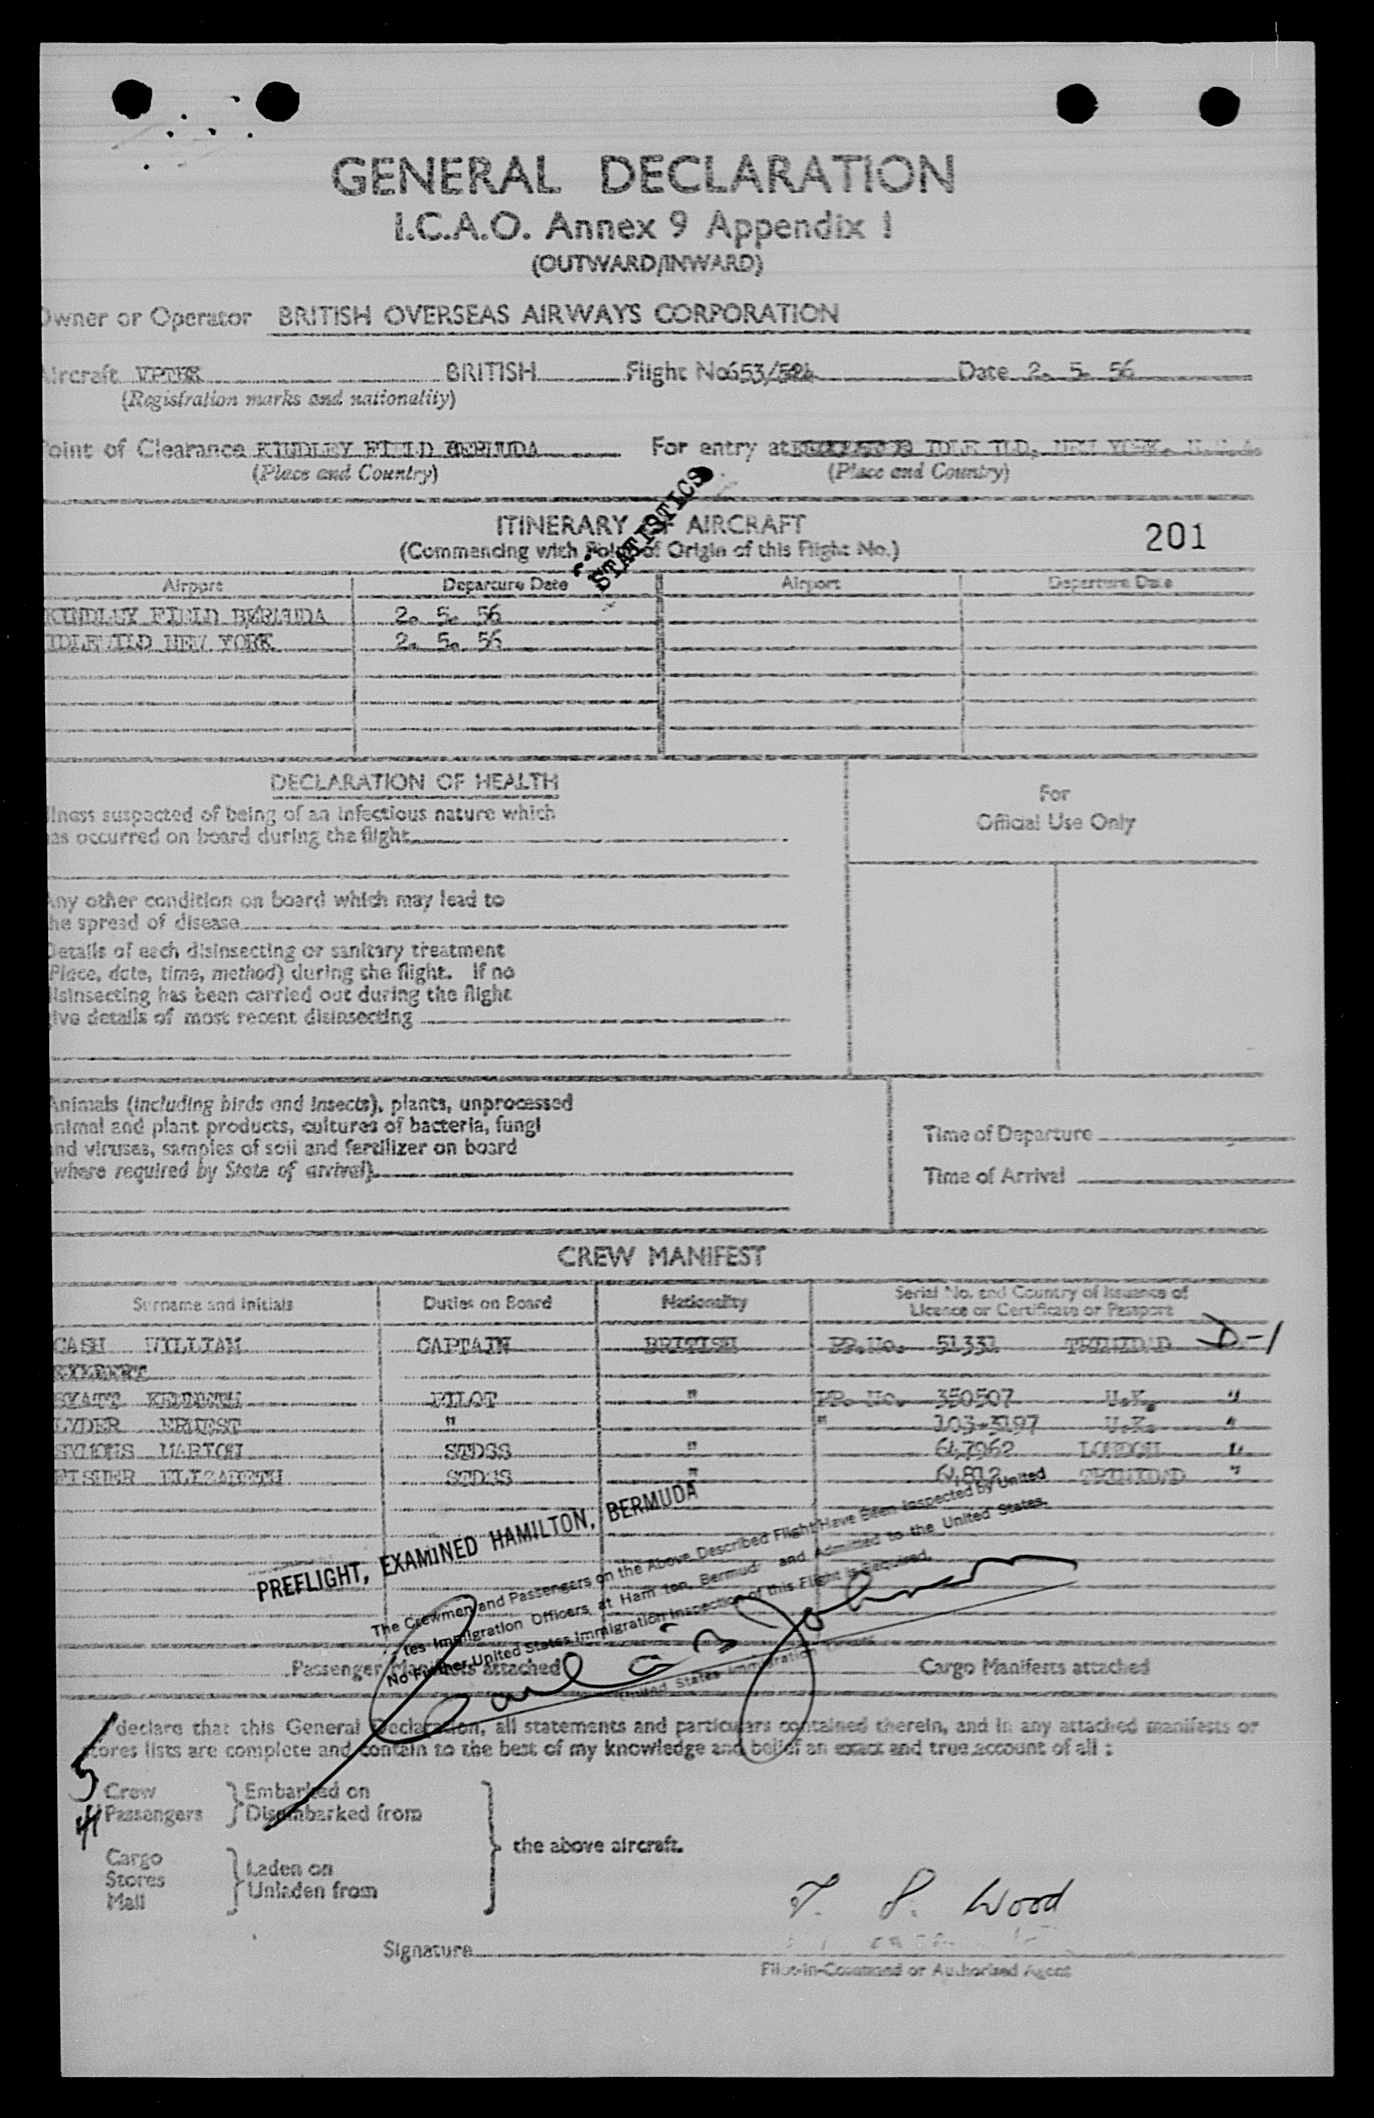 GENERAL DECLARATION
I.C.A.O. Annex 9 Appendix 1
(OUTWARD/INWARD)
Owner or Operator BRITISH OVERSEAS AIRWAYS CORPORATION
Aircraft BRITISH Flight No 653/ Date 2. 5. 56
(Registration marks and nationality)
Point of Clearance KINDLEY FIELD BERMUDA For entry at NEW YORK.
(Place and Country) (Place and Country)
STATISTICS
ITINERARY OF AIRCRAFT 201
(Commencing with Point of Origin of this Flight No.)
Airport Departure Date Airport Departure Date
KINDLEY FIELD BERMUDA 2. 5. 56
IDLEWILD NEW YORK 2. 5. 56
DECLARATION OF HEALTH
For
Official Use Only
llness suspected of being of an infectious nature which
has occurred on board during the flight
Any other condition on board which may lead to
the spread of disease
Details of each disinsecting or sanitary treatment
(Place, date, time, method) during the flight. If no
disinsecting has been carried out during the flight
give details of most recent disinsecting
Animals (including birds and insects), plants, unprocessed
animal and plant products, cultures of bacteria, fungi
and viruses, samples of soil and fertilizer on board
(where required by State of arrival)
Time of Departure
Time of Arrival
CREW MANIFEST
Surname and Initials Duties on Board Nationality Serial No. and Country of Issuance of
Licence or Certificate or Passport
CASH WILLIAM CAPTAIN BRITISH PP.No. 51331 TRINIDAD D-1
KENNETH PILOT " PP. No. 350507 U.K. "
LYDER ERNEST " " 103-3197 U.K. "
SYMONS MARION STDSS " 647962 LONDON "
FISHER ELIZABETH STDSS " 64812 TRINIDAD "
PREFLIGHT, EXAMINED HAMILTON, BERMUDA
The Crewmen and Passengers on the Above Described Flight Have Been Inspected by United
tes Immigration Officers at Ham ton, Bermud and Admitted to the United States.
No Further United States Immigration Inspection of this Flight is Required.
United States Immigration
Passenger Manifests attached Cargo Manifests attached
I declare that this General Declaration, all statements and particulars contained therein, and in any attached manifests or
stores lists are complete and contain to the best of my knowledge and belief an exact and true account of all :
5 Crew Embarked on
41 Passengers Disembarked from
the above aircraft.
Cargo Laden on
Stores Unladen from
Mail
Wood
Signature
Pilot-in-Command or Authorised Agent